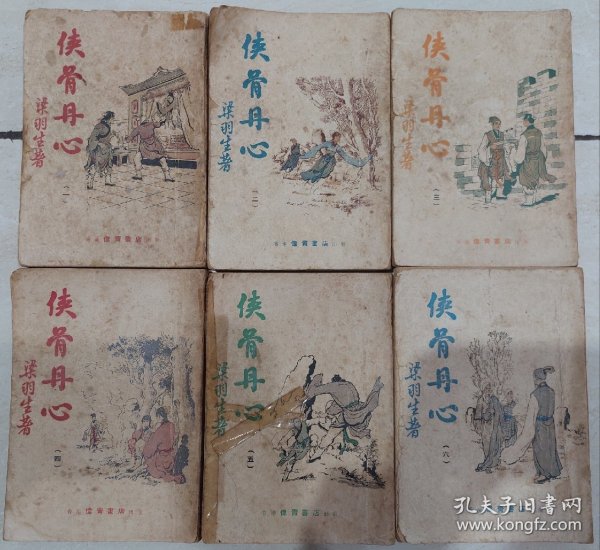 侠骨丹心
梁羽生著
(一)
香港偉青書店印行
侠骨丹心
梁羽生著
(二)
香港偉青書店印行
侠骨丹心
梁羽生著
(三)
偉青書店
侠骨丹心
梁羽生著
(四)
香港偉青書店印行
侠骨丹心
梁羽生著
(五)
香港偉青書店印行
侠骨丹心
梁羽生著
(六)
孔夫子旧书网
www.kongfz.com